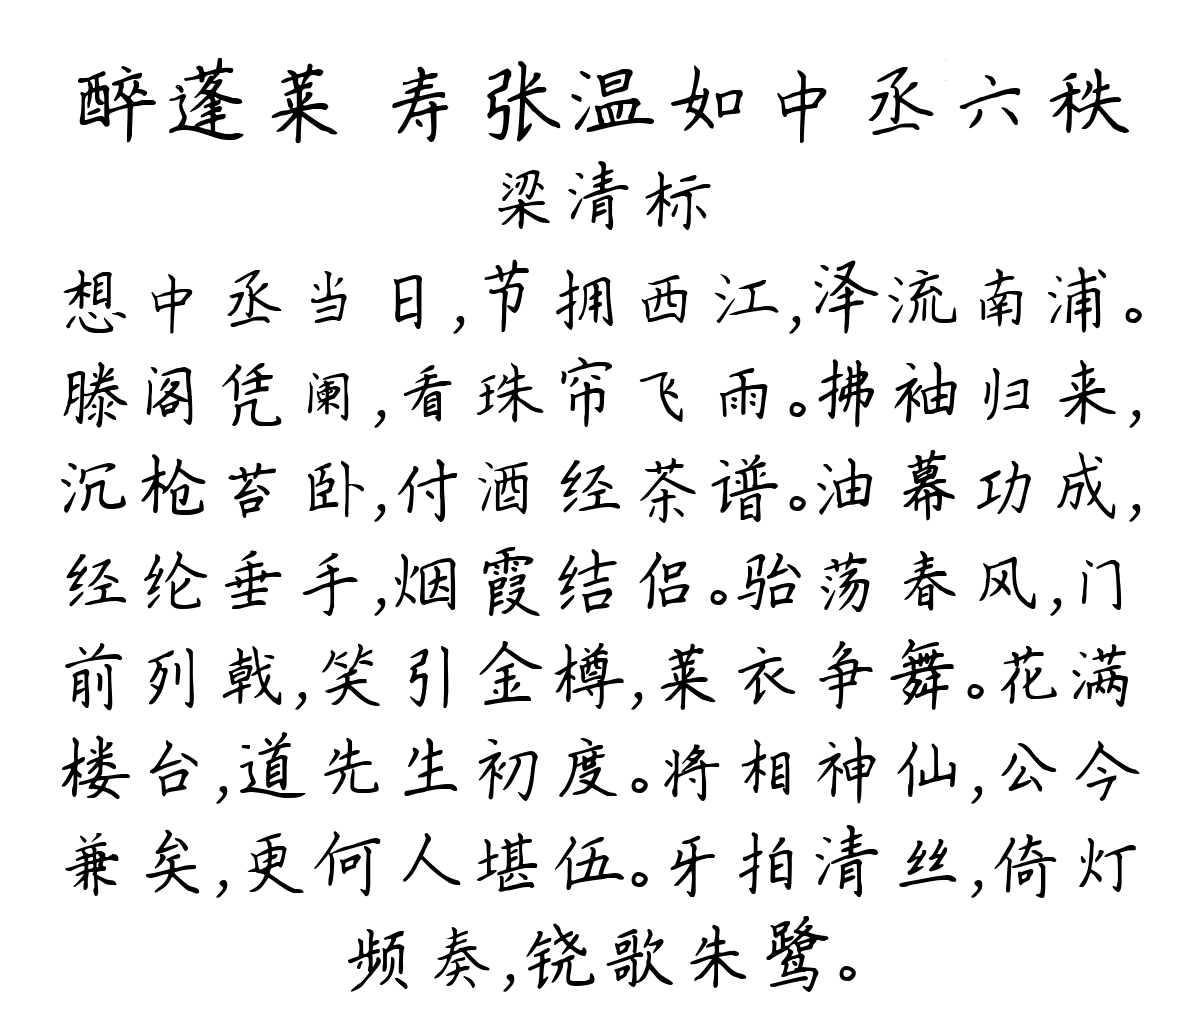 醉蓬莱 寿张温如中丞六秩
梁清标
想中丞当日,节拥西江,泽流南浦。
滕阁凭阑,看珠帘飞雨。拂袖归来,
沉枪苔卧,付酒经茶谱。油幕功成,
经纶垂手,烟霞结侣。骀荡春风,门
前列戟,笑引金樽,莱衣争舞。花满
楼台,道先生初度。将相神仙,公今
兼矣,更何人堪伍。牙拍清丝,倚灯
频奏,铙歌朱鹭。